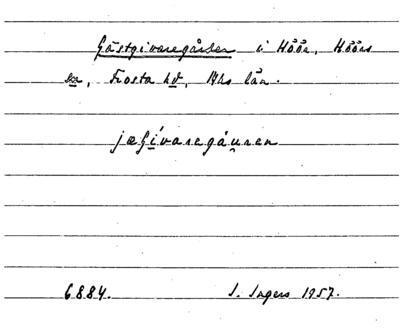 Gästgivaregården i Höör, Höörs
sn, Frosta hd, Mhs län.
jæʃívaregáu̯ren
6884. I. Ingers 1957.